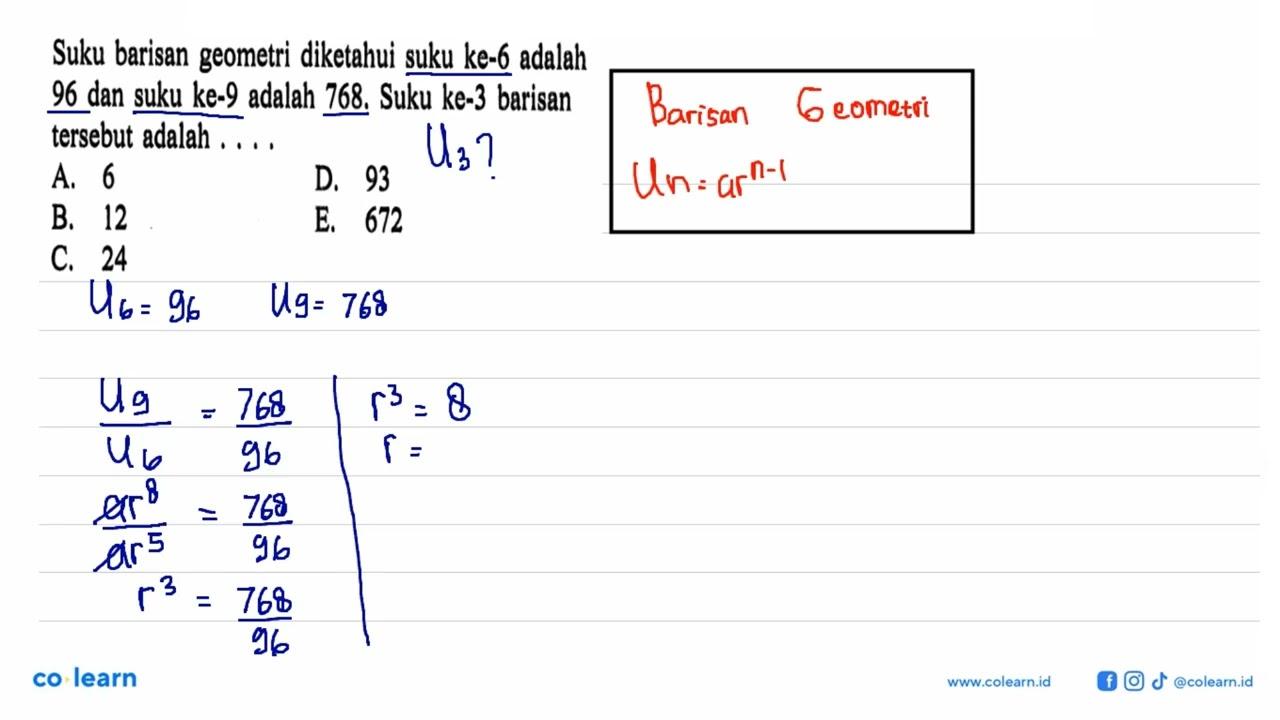 Suku barisan geometri diketahui suku ke-6 adalah
96 dan suku ke-9 adalah 768. Suku ke-3 barisan
tersebut adalah . . . .
U₃?
A. 6
D. 93
B. 12
E. 672
C. 24
Barisan Geometri
Un = ar^(n-1)
U₆ = 96 U₉ = 768
U₉/U₆ = 768/96
ar⁸/ar⁵ = 768/96
r³ = 768/96
r³ = 8
r =
co learn
www.colearn.id
@colearn.id